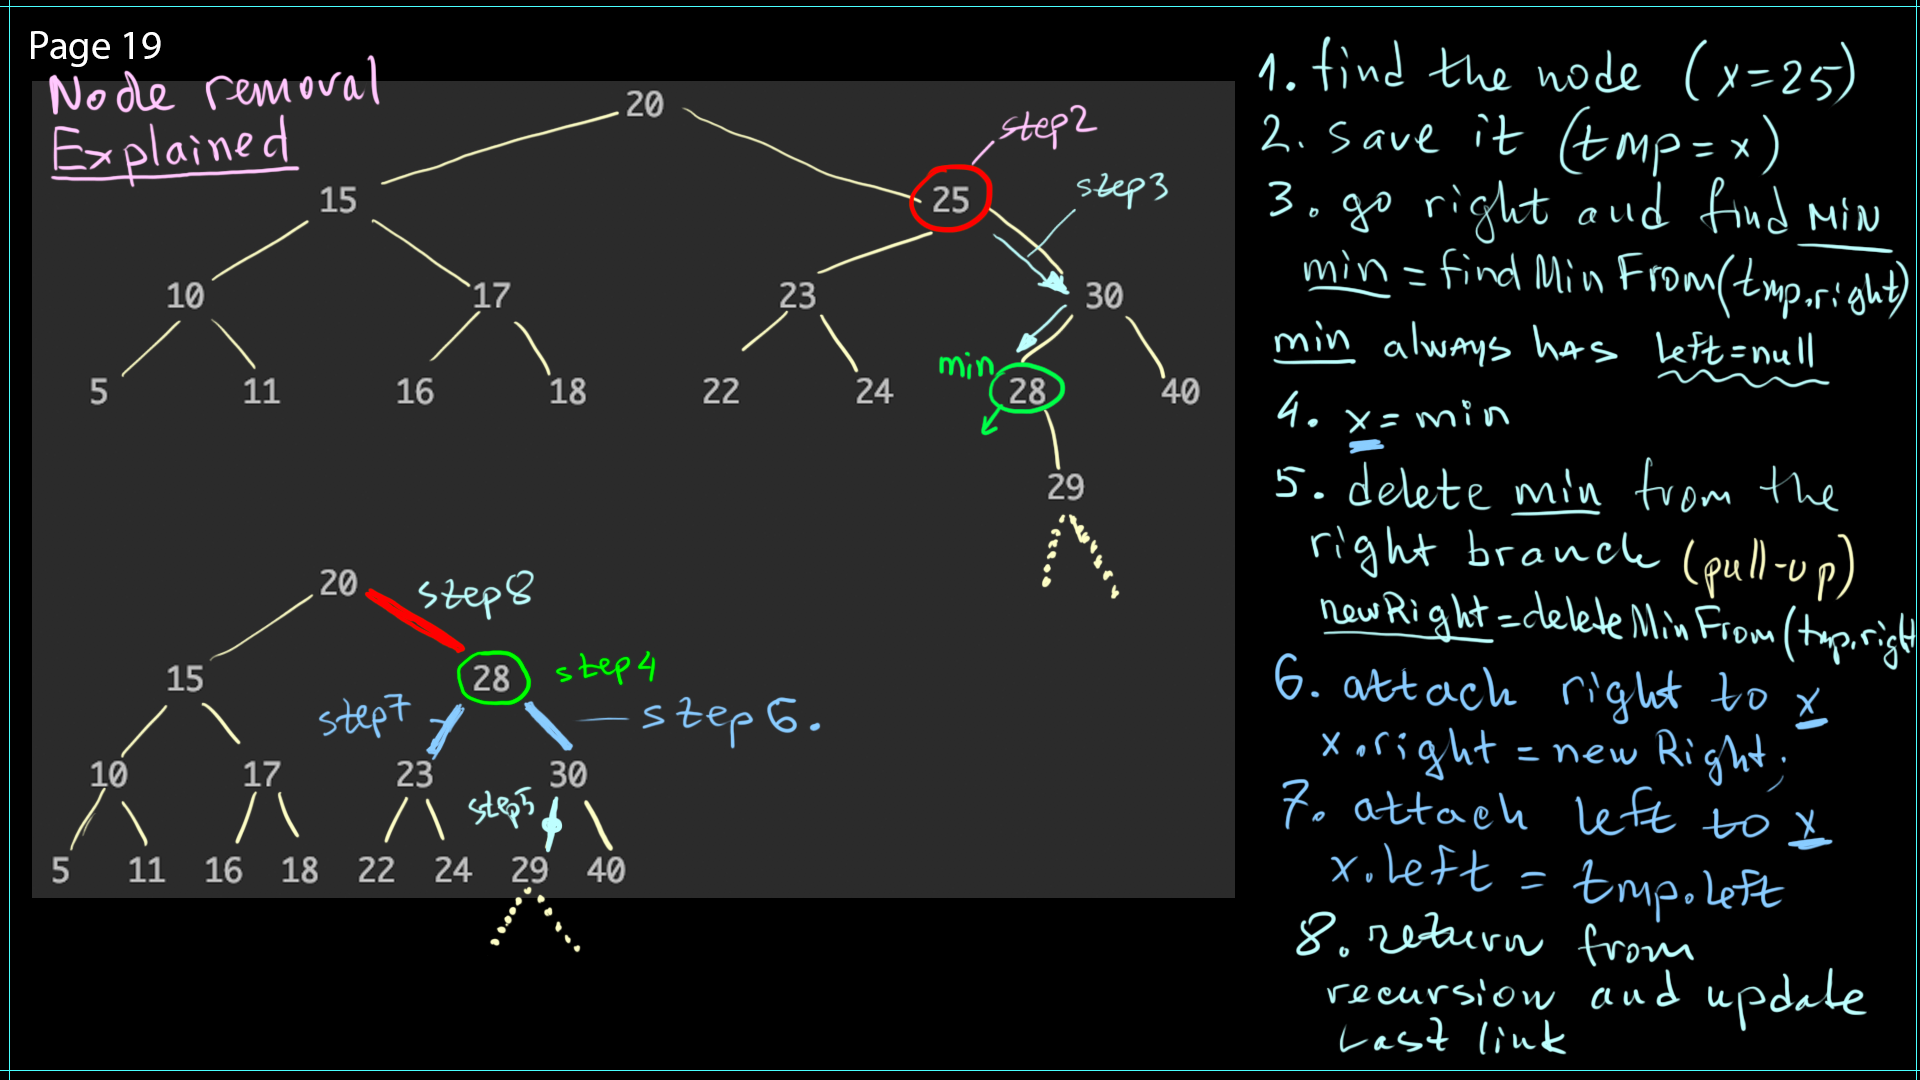 Page 19
Node removal
Explained
20
step2
15
25
step3
10
17
23
30
min
5
11
16
18
22
24
28
40
29
20
step8
15
28
step4
step7
step6.
10
17
23
30
step5
5
11
16
18
22
24
29
40
1. find the node (x=25)
2. save it (tmp=x)
3. go right and find MIN
min = find Min From(tmp.right)
min always has left=null
4. x=min
5. delete min from the
right branch (pull-up)
newRight=delete Min From(tmp.right
6. attach right to x
x.right = new Right;
7. attach left to x
x.left = tmp.left
8. return from
recursion and update
Last link